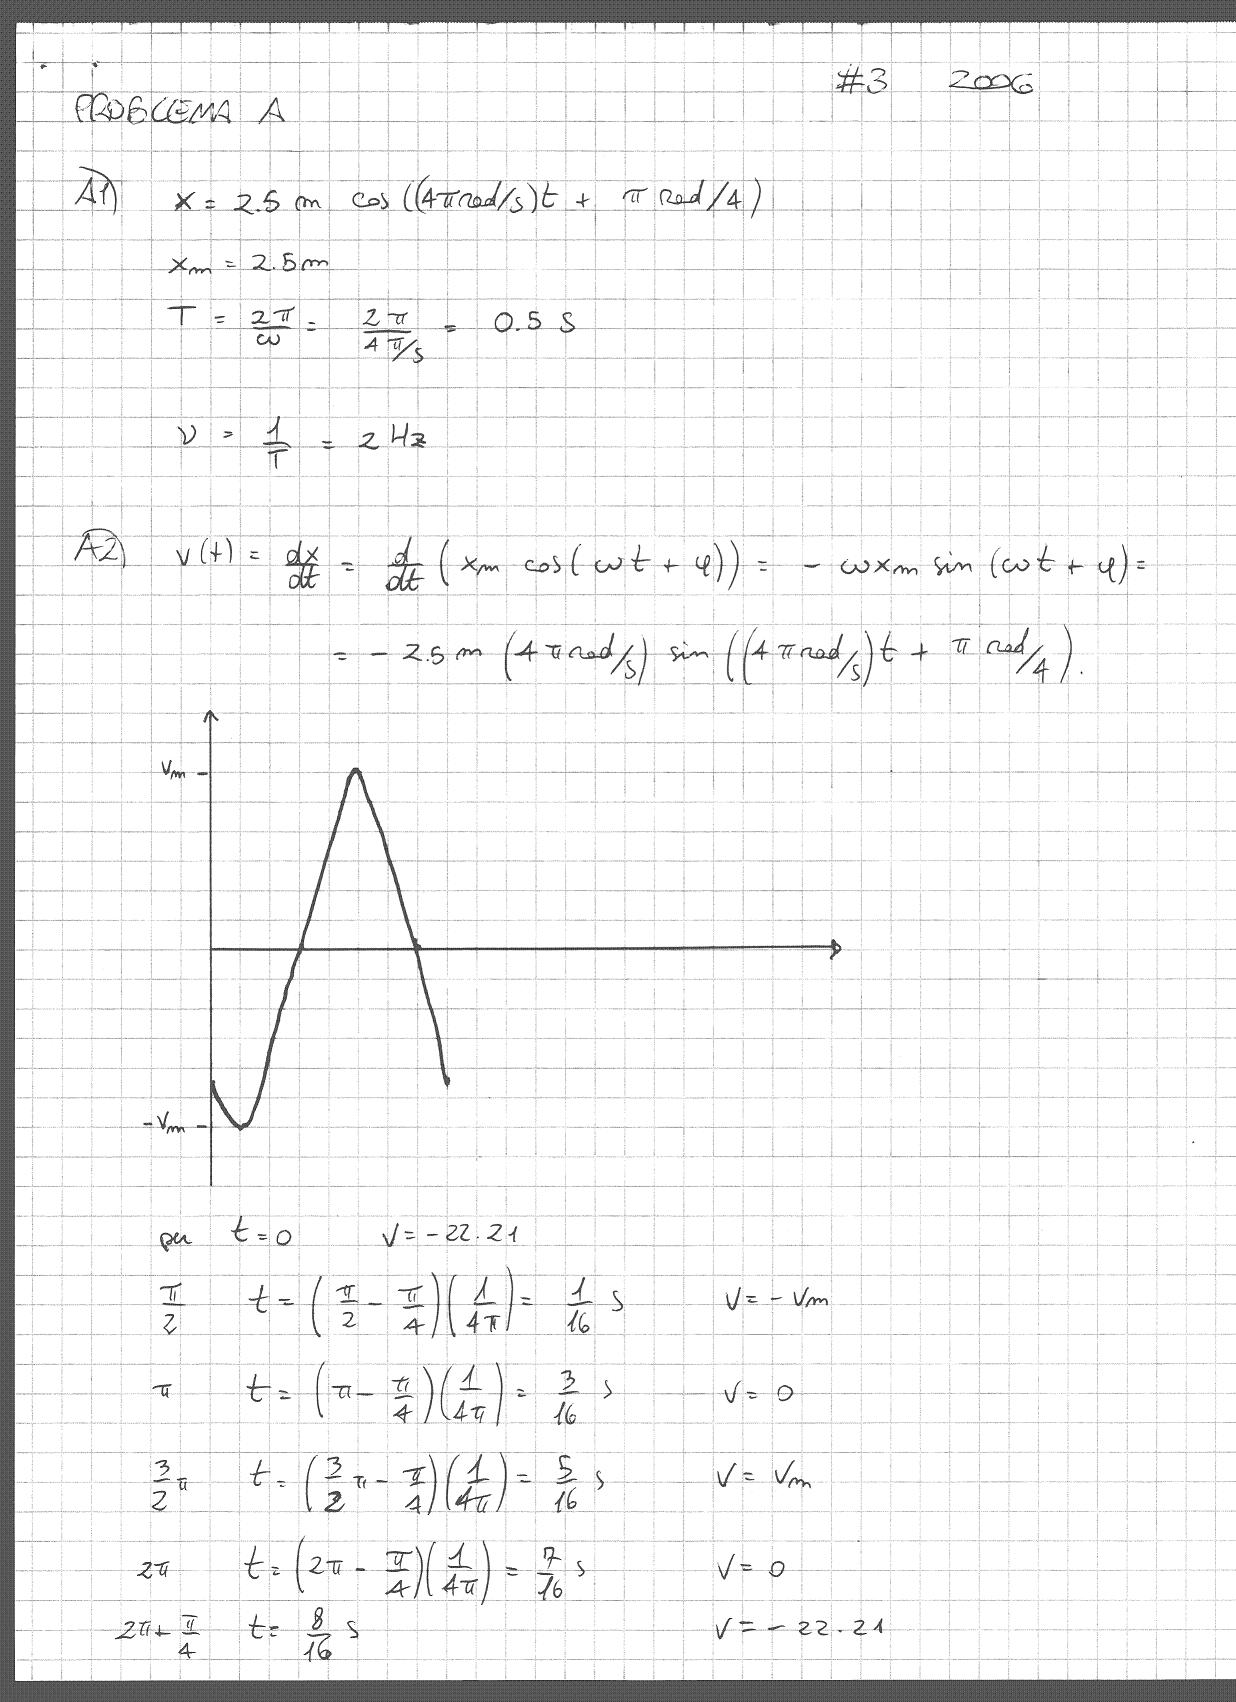 #3 2006
PROBLEMA A
A1) x = 2.5 m cos((4π rad/s)t + π rad/4)
xm = 2.5 m
T = 2π/ω = 2π/4π/s = 0.5 s
ν = 1/T = 2 Hz
A2) v(t) = dx/dt = d/dt (xm cos(ωt + φ)) = - ωxm sin(ωt + φ) =
= - 2.5 m (4π rad/s) sin((4π rad/s)t + π rad/4).
vm
-vm
per t=0 v=-22.21
π/2 t = (π/2 - π/4)(1/4π) = 1/16 s v = -vm
π t = (π - π/4)(1/4π) = 3/16 s v = 0
3/2 π t = (3/2 π - π/4)(1/4π) = 5/16 s v = vm
2π t = (2π - π/4)(1/4π) = 7/16 s v = 0
2π + π/4 t = 8/16 s v = -22.21